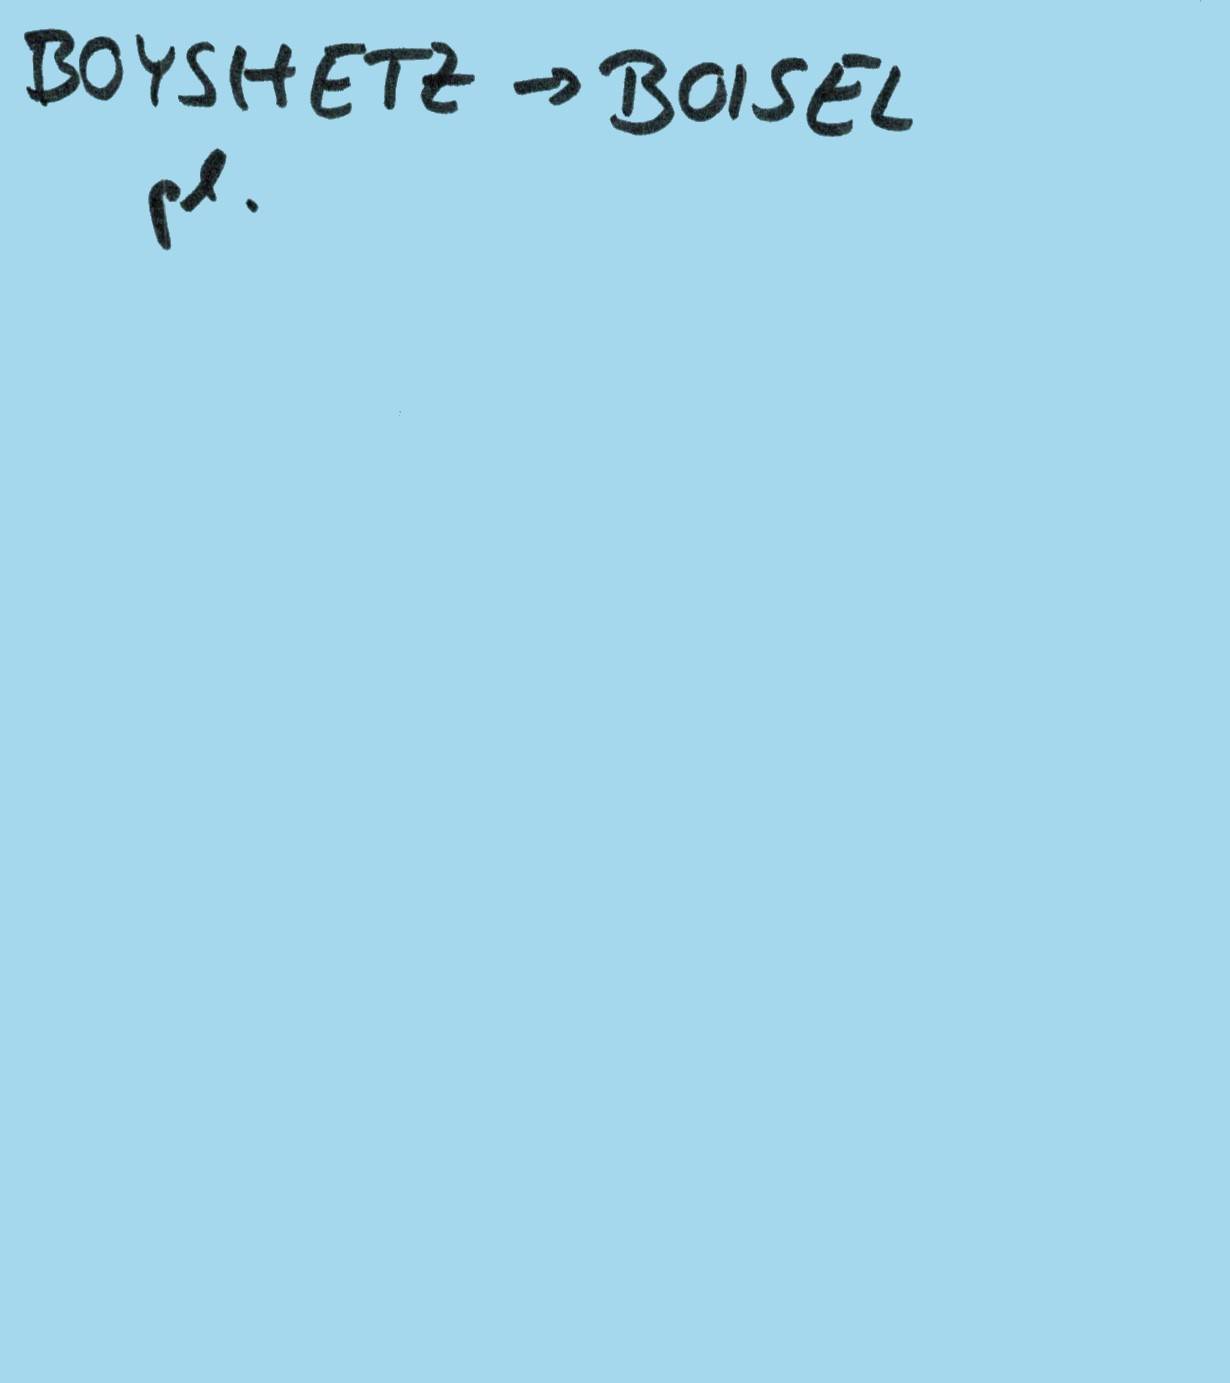 BOYSHETZ → BOISEL
pl.